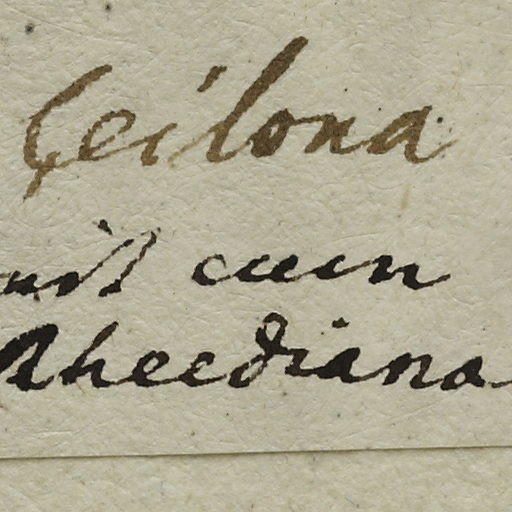 Ceilona
cum
Rheediana